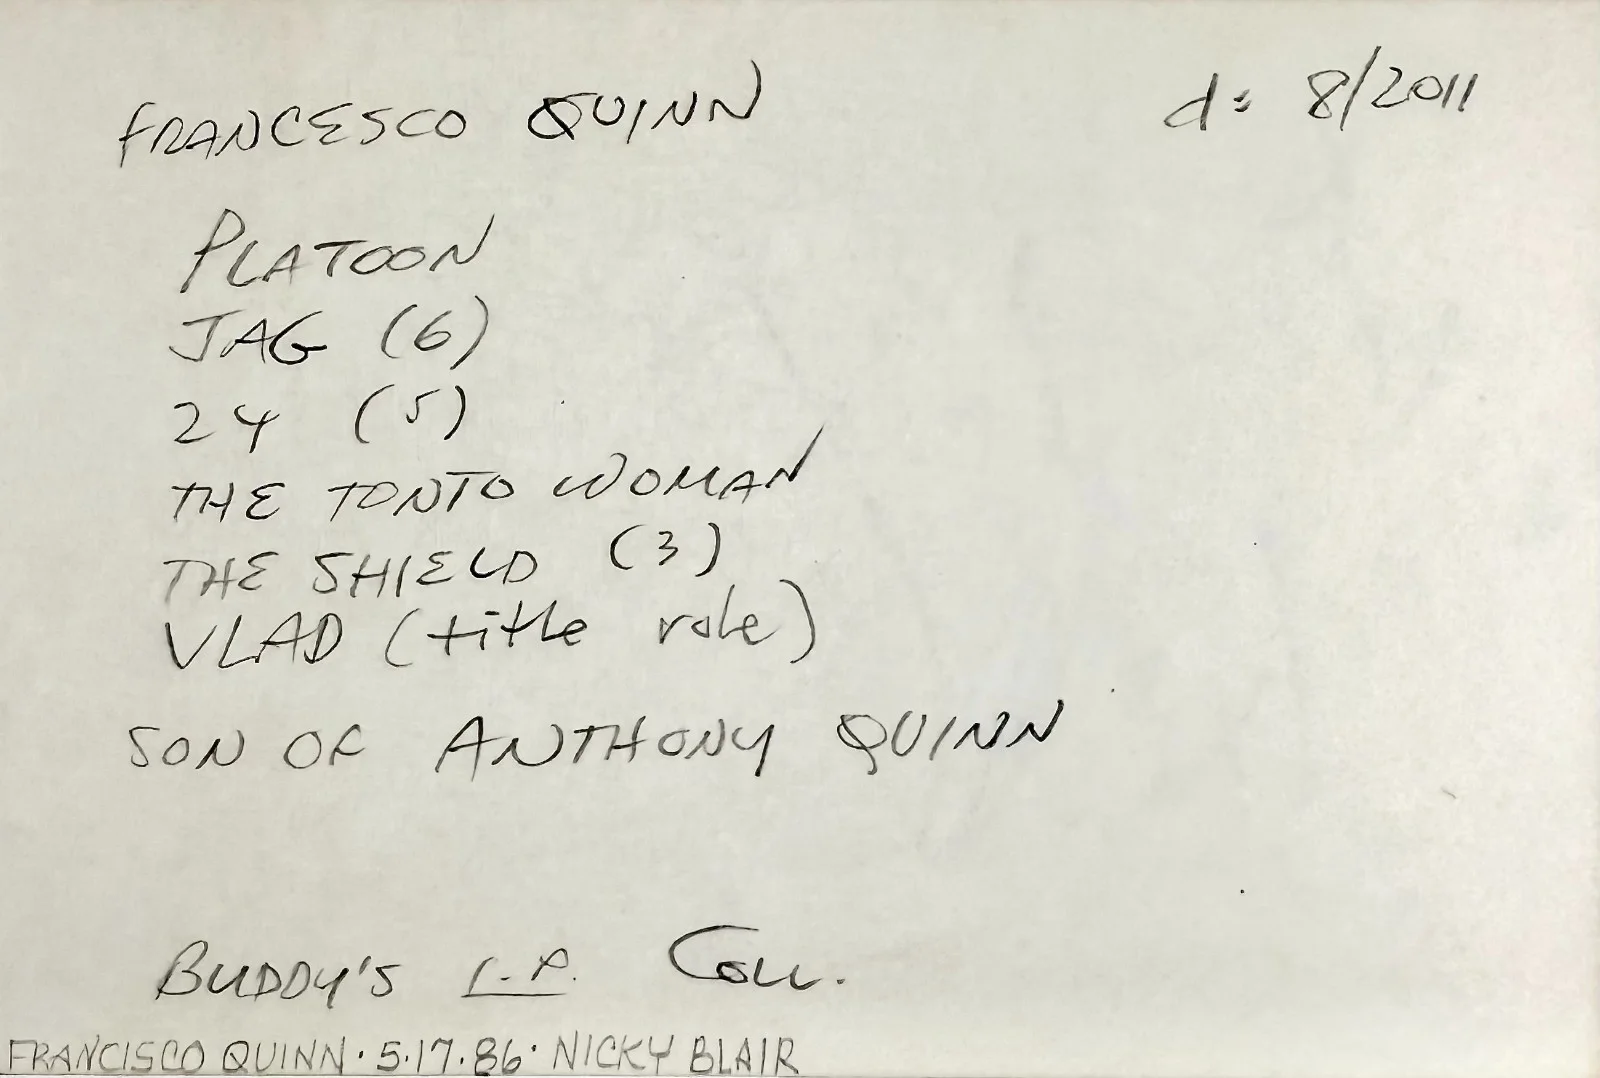 FRANCESCO QUINN d: 8/2011
PLATOON
JAG (6)
24 (5)
THE TONTO WOMAN
THE SHIELD (3)
VLAD (title role)
SON OF ANTHONY QUINN
BUDDY'S Coll.
FRANCISCO QUINN · 5·17·86 · NICKY BLAIR